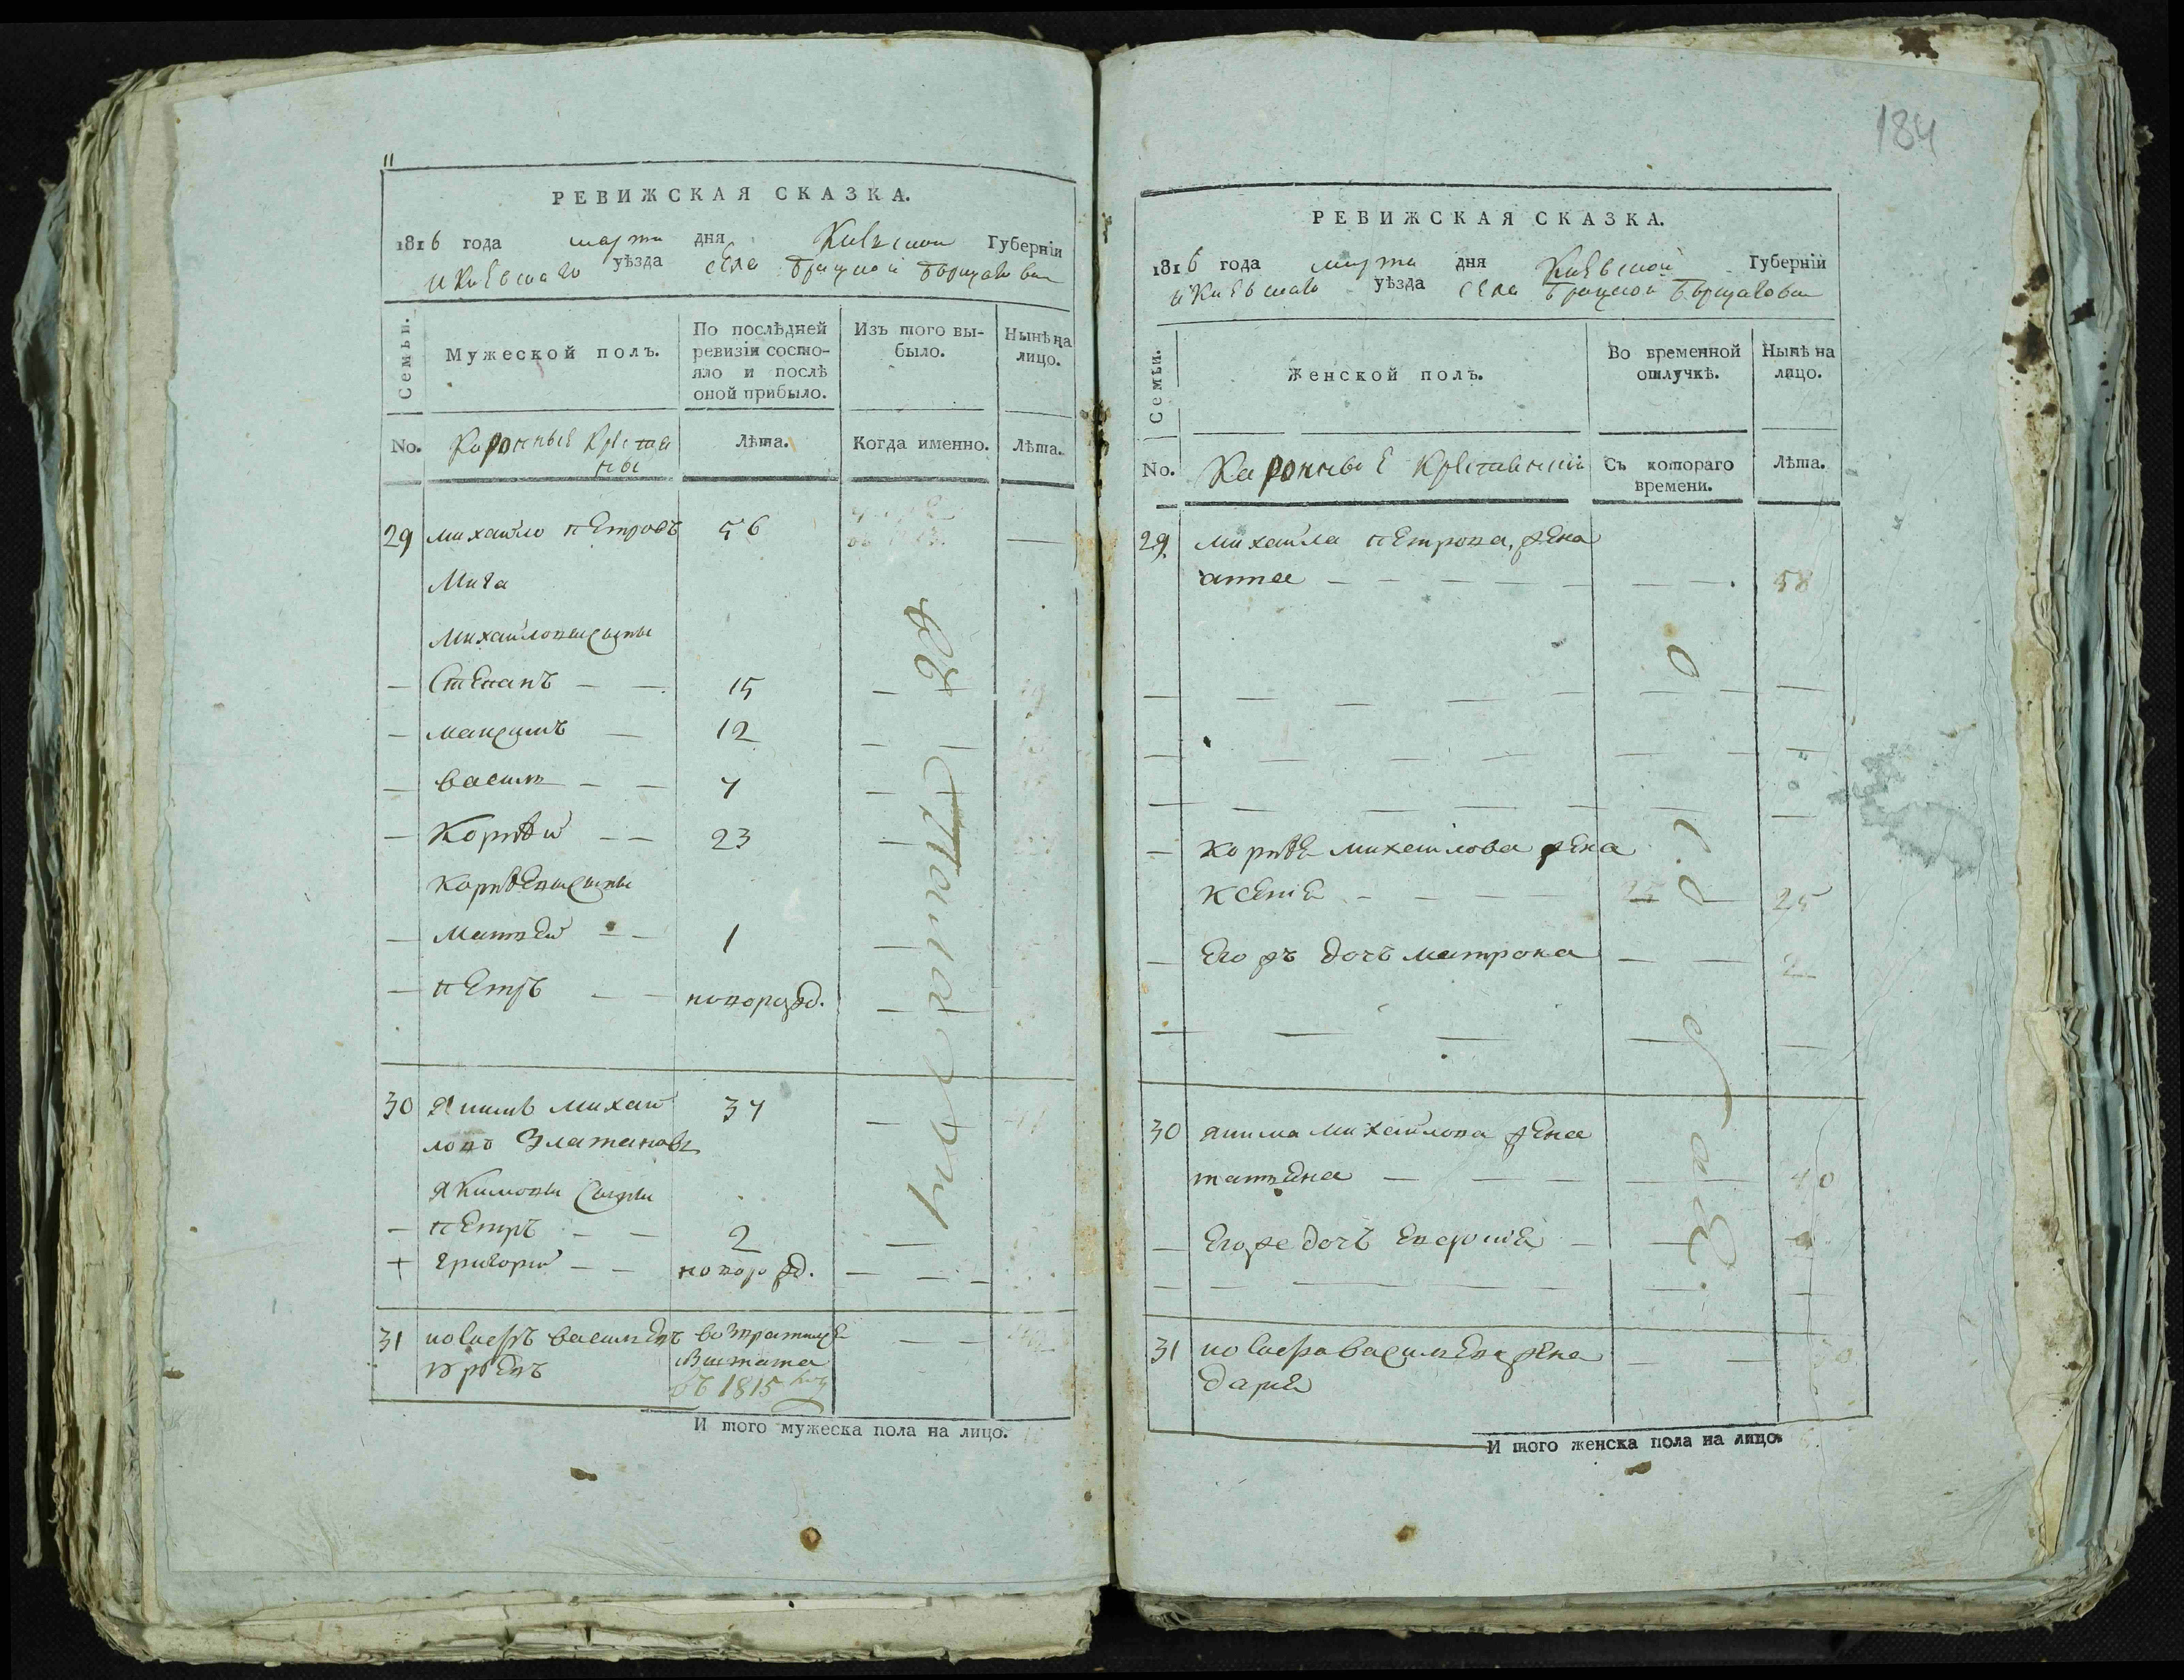 184
РЕВИЖСКАЯ СКАЗКА.
1816 года марта дня Киевской Губерніи
и Киевскаго уѣзда села Братской Борщаговки
Семьи.
Мужеской полъ.
По послѣдней ревизіи состояло и послѣ оной прибыло.
Изъ того выбыло.
Нынѣ на лицо.
No.
Каронные Крестяны
Лѣта.
Когда именно.
Лѣта.
29 михайло петровъ 56 —
Михайловы сыны
— Степанъ — — 15 — —
— максимъ — 12 — —
— васил — — 7 — —
— Корнѣй — — 23 —
Корнѣевы сыны
— Матвей — — 1 —
— петръ — — новорожд. —
30 Якимъ михай 37 —
ловъ
Якимовы сыны
— петръ — — 2 —
+ григорий — — новорожд. — — —
31 иосифъ василевъ — —
въ 1815 году
И того мужеска пола на лицо.
РЕВИЖСКАЯ СКАЗКА.
1816 года марта дня Киевской Губерніи
и Киевскаго уѣзда села Братской Борщаговки
Семьи.
Женской полъ.
Во временной отлучкѣ.
Нынѣ на лицо.
No.
Каронные Крестянки
Съ котораго времени.
Лѣта.
29 михайла петрова жена
анна — — — — — — 58
— Корнѣя михайлова жена
ксения — — — — 25
— Его жъ дочъ матрона — — 2
30 якима михайлова жена
татяна — — — — — 40
— Его же дочъ —
31 иосифа василева жена — —
дария
И того женска пола на лицо